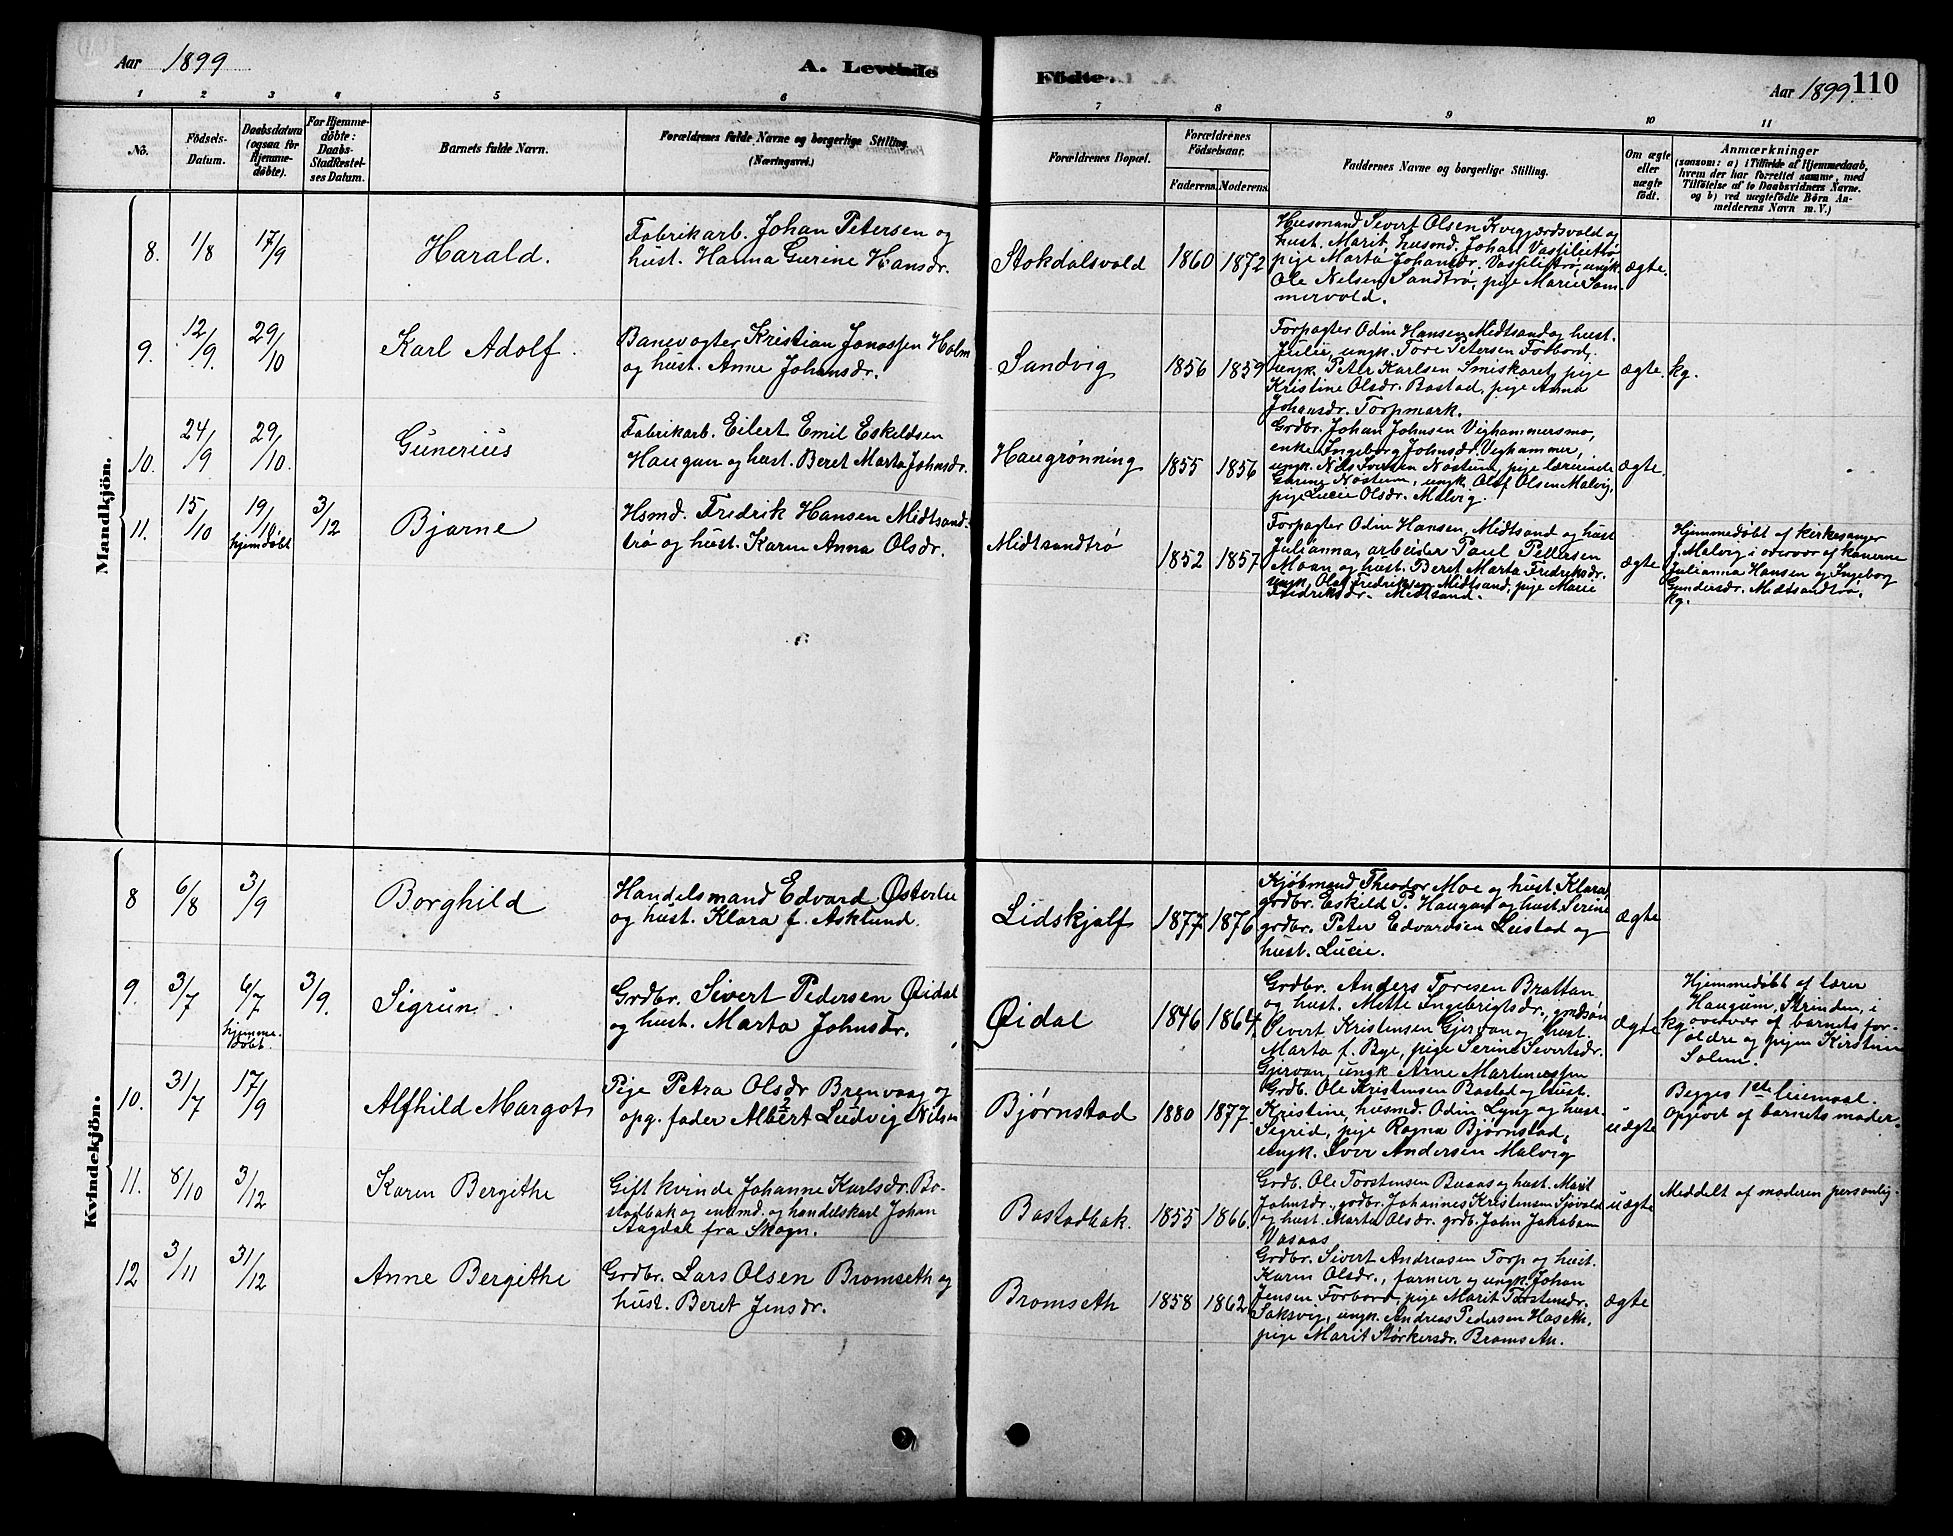 Aar 1899
A. Levende
Födte.
Aar 1899.
110
1 2 3 4 5 6 7 8 9 10 11
No.
Födsels-
Datum.
Daabsdatum
(ogsaa for
Hjemme-
döbte).
For Hjemme-
döbte:
Daabs-
Stadfæstel-
ses Datum.
Barnets fulde Navn.
Forældrenes fulde Navne og borgerlige Stilling
(Næringsvei.)
Forældrenes Bopæl.
Forældrenes
Födselsaar.
Faderens. Moderens.
Faddernes Navne og borgerlige Stilling.
Om ægte
eller
uægte
födt.
Anmærkninger
(saasom: a) i Tilfælde af Hjemmedaab,
hvem der har forrettet samme, med
Tilföielse af to Daabsvidners Navne.
og b) ved uægtefödte Børn An-
melderens Navn m. V.)
Mandkjön.
8. 1/8 17/9
Harald.
Fabrikarb. Johan Petersen og
hust. Hanna Gurine Hansdr.
Stokdalsvold 1860 1872
Husmand Sivert Olsen Kvegjordsvold og
hust. Marit, husmd. Johan
pige Marta Johansdr. ungk.
Ole Nilsen Sandtrø, pige Marie Som-
mervold.
ægte.
9. 12/9. 29/10
Karl Adolf.
Banevogter Kristian Jonassen Holm
og hust. Anne Johansdr.
Sandvig 1856 1859
Forpagter Odin Hansen Midtsand og hust.
Julie, ungk. Tore Petersen Forbord,
ungk. Peter Karlsen Smiskaret, pige
Kristine Olsdr. Bostad, pige Anna
Johansdr. Torpmark.
ægte. kg.
10. 24/9 29/10.
Gunerius
Fabrikarb. Eilert Emil Eskildsen
Haugan og hust. Beret Marta Johnsdr.
Haugrønning 1855 1856
Grdbr. Johan Johnsen Vighammersmo,
enke Ingeborg Johnsdr. Vighammer,
ungk. Nils Iversen Nøstum, pige lærerinde
Gurine Nøstum, ungk. Olaf Olsen Malvig,
pige Lucie Olsdr. Malvig.
ægte.
11. 15/10 19/10. hjemdøbt 3/12
Bjarne
Hsmd. Fredrik Hansen Midtsand-
trø og hust. Karen Anna Olsdr.
Midtsandtrø 1852 1857
Forpagter Odin Hansen, Midtsand og hust
Julianna, arbeider Paul Pettersen
Moan og hust. Beret Marta Fredriksdr.
ungk. Olaf Fredriksen Midtsand, pige Marie
Fredriksdr. Midtsand.
ægte
Hjemmedøbt af kirkesanger
J. Malvig i overvær af konerne
Julianna Hansen og Ingeborg
Gundersdr. Midtsandtrø.
kg.
Kvindekjön.
8 6/8 3/9
Borghild
Handelsmand Edvard Østerlie
og hust. Klara f. Asklund.
Lidskjalf 1877 1876
Kjøbmand Theodor Moe og hust. Klara,
grdbr. Eskild P. Haugan og hust. Serine
grdbr. Peter Edvardsen Leistad og
hust. Lucie.
ægte
9. 3/7 6/7 hjemme-
døbt. 3/9.
Sigrun
Grdbr. Sivert Pedersen Øidal
og hust. Marta Johnsdr.
Øidal 1846 1864
Grdbr. Anders Toresen Brattan
og hust. Mette Ingebrigtsdr., gmdsøn
Sivert Kristensen Gjervan og hust.
Marta f. Bye, pige Serine Sivertsdr.
Gjervan, ungk Arne Martinussen
ægte
Hjemmedøbt af lærer
Haugum, Strinden, i
kg. overvær af barnets for-
ældre og pigen Kirstine
Solem.
10. 31/7 17/9
Alfhild Margot
Pige Petra Olsdr Brenvaag og
opg. fader Albert Ludvig Nilsen
Bjørnstad 1880 1877.
Grdb. Ole Kristensen Bostad og hust.
Kristine, husmd. Odin Lyng og hust.
Sigrid, pige Ragna Bjørnstad,
ungk. Iver Andersen Malvig
uægte
Begges 1ste leiermaal.
Opgivet af barnets moder.
11. 8/10 3/12
Karen Bergithe
Gift kvinde Johanne Karlsdr. Bo-
stadbak og enkemd. og handelskarl Johan
Aagdal fra Skogn.
Bostadbak. 1855 1866.
Grdb. Ole Torstensen Buaas og hust. Marit
Johnsdr., grdbr. Johannes Kristensen Sjøvold
og hust. Marta Olsdr. grdb. John Jakobsen
Vasaas
uægte
Meddelt af moderen personlig.
12 3/11 31/12
Anne Bergithe
Grdbr. Lars Olsen Bromseth og
hust. Beret Jensdr.
Bromseth 1858 1862
Grdbr. Sivert Andreasen Torp og hust.
Karen Olsdr., farmer og ungk. Johan
Jensen Forbord, pige Marit Torstensdr.
Saksvig, ungk. Andreas Pedersen Haseth,
pige Marit Størkersdr. Bromseth.
ægte